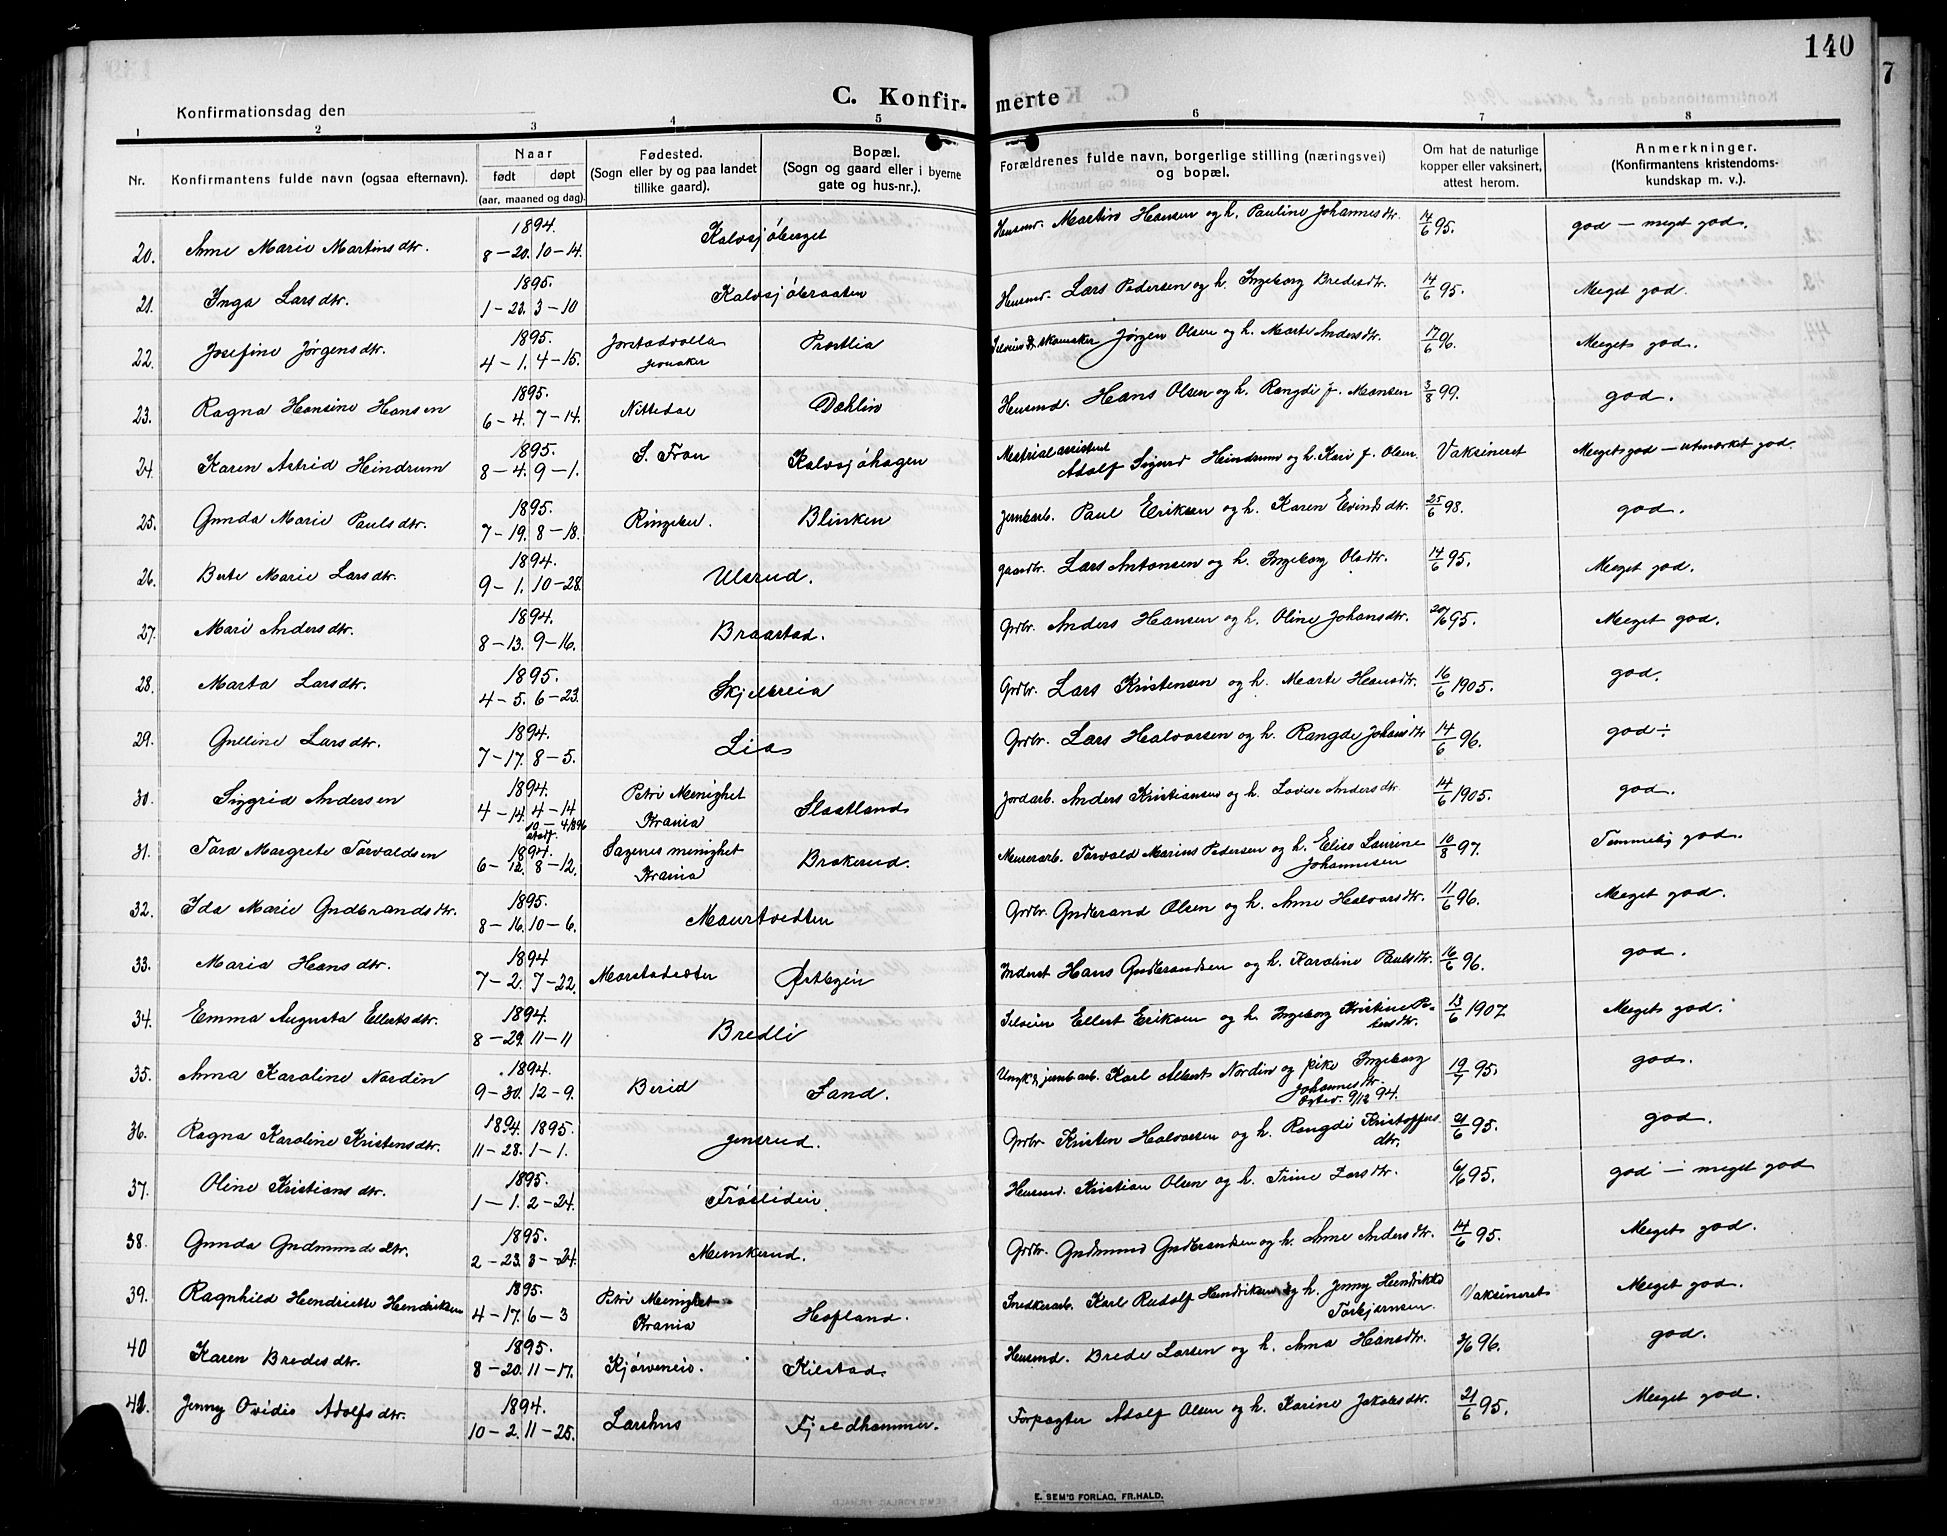 140
7
C. Konfir-
merte
Konfirmationsdag den
1 2 3 4 5 6 7 8
Nr.
Konfirmantens fulde navn (ogsaa efternavn).
Naar
født døpt
(aar, maaned og dag).
Fødested.
(Sogn eller by og paa landet
tillike gaard).
Bopæl.
(Sogn og gaard eller i byerne
gate og hus-nr.).
Forældrenes fulde navn, borgerlige stilling (næringsvei)
og bopæl.
Om hat de naturlige
kopper eller vaksinert,
attest herom.
Anmerkninger.
(Konfirmantens kristendoms-
kundskap m. v.).
1894.
20. Anne Marie Martinsdtr. 8-20. 10-14. Kalvsjöberget Husmd. Martin Hansen og h. Pauline Johannesdtr. 14/6 95. god - meget god.
1895.
21. Inga Larsdtr. 1-23. 3-10 Kalvsjöbraaten Husmd. Lars Pedersen og h. Ingeborg Bredesdtr. 14/6 95. Meget god.
1895.
22. Josefine Jörgensdtr. 4-1. 4-15. Jorstadvolla Prestlia Jörgen Olsen og h. Marte Andersdtr. 17/6 96. Meget god.
1895.
23. Ragna Hansine Hansen 6-4. 7-14. Nittedal Dæhlin Husmd. Hans Olsen og h. Rangdi f. Monsen 3/8 99. god.
1895.
24. Karen Astrid Heindrum 8-4. 9-1. S. Fron Kalvsjöhagen
Adolf Sigurd Heindrum og h. Kari f. Olsen Vaksineret Meget god - utmerket god.
1895.
25. Gunda Marie Paulsdtr. 7-19. 8-18. Ringebu. Blinken Jernbarb. Paul Eriksen og h. Karen Evindsdtr. 25/6 98. god.
1894.
26. Berte Marie Larsdtr. 9-1. 10-28. Ulsrud. Gaardbr. Lars Antonsen og h. Ingeborg Olsdtr. 14/6 95. Meget god.
1894.
27. Mari Andersdtr. 8-13. 9-16. Braastad. Grdbr. Anders Hansen og h. Oline Johansdtr. 20/6 95. Meget god.
1895.
28. Marta Larsdtr. 4-5. 6-23. Skjelbreia Grdbr. Lars Kristensen og h. Marte Hansdtr. 16/6 1905. god.
1894.
29. Gulline Larsdtr. 7-17. 8-5. Lia Grdbr. Lars Halvorsen og h. Rangdi Johansdtr 14/6 96. god ÷
1894.
30. Sigrid Andersen 4-14. 4-14 Petri Menighet Slaatland Jordarb. Anders Kristiansen og h. Lovise Andersdtr. 14/6 1905. god.
10-4/1896 Krania
1894.
31. Tora Margrete Torvaldsen 6-12. 8-12. Sagenes menighet Brakerud. Murerarb. Torvald Marius Pedersen og h. Elise Laurine 10/8 97. Temmelig god.
Krania Johannesen
1895.
32. Ida Marie Gudbrandsdtr. 8-16. 10-6. Maurtvedten Grdbr. Gudbrand Olsen og h. Anne Halvorsdtr. 11/6 96. Meget god.
1894
33. Maria Hansdtr. 7-2. 7-22. Morstadæter Østbyen Inderst Hans Gudbrandsen og h. Karoline Paulsdtr. 16/6 96. god.
1894.
34. Emma Augusta Ellertsdtr. 8-29. 11-11 Bredli Ellert Eriksen og h. Ingeborg Kristine Pe- 13/6 1907 Meget god.
dersdtr.
1894.
35. Anna Karoline Nordén 9-30. 12-9. Berid Sand. Ungk. & jernb.arb. Karl Albert Nordén og pike Ingeborg 19/7 95. god.
Johannesdtr.
9/12 94.
1894. 1895.
36. Ragna Karoline Kristensdtr. 11-28. 1-1. Jensrud. Grdbr. Kristen Halvorsen og h. Rangdi Kristoffers 21/6 95. god.
dtr.
1895.
37. Oline Kristiansdtr. 1-1. 2-24. Fröslidein. Husmd. Kristian Olsen og h. Trine Larsdtr. 6/6 95. god - meget god
1895.
38. Gunda Gudmundsdtr. 2-23. 3-24. Munkerud. Grdbr. Gudmund Gudbrandsen og h. Anne Andersdtr. 14/6 95. Meget god.
1895.
39. Ragnhild Hendriette Hendriksen 4-17. 6-3 Petri Menighet Hofland. Snedkerarb. Karl Rudolf Hendriksen og h. Jenny Hendrikke Vaksineret Meget god.
Krania Torbjørnsen.
1895.
40 Karen Bredesdtr. 8-20. 11-17. Kjörveneie. Kilstad Husmd. Brede Larsen og h. Anna Hansdtr. 3/6 96. god.
1894.
41. Jenny Ovidia Adolfsdtr. 10-2. 11-25. Larshus Fjeldhammer. Forpagter Adolf Olsen og h. Karine Jakobsdtr. 21/6 95. Meget god.
E. SEM'S FORLAG, FR.HALD.